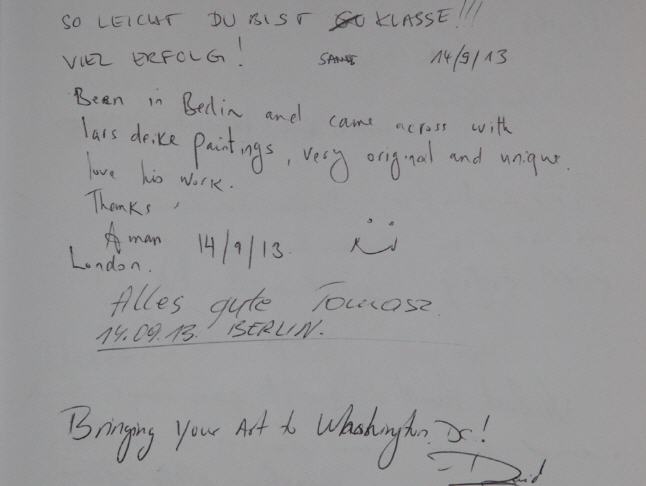 SO LEICHT DU BIST SO KLASSE!!!
VIEL ERFOLG! 14/9/13
Been in Berlin and came across with
lars deike paintings, very original and unique.
love his work.
Thanks,
Aman 14/9/13.
London.
Alles gute Tomasz.
14.09.13. BERLIN.
Bringing Your Art to Washington, DC!
- David